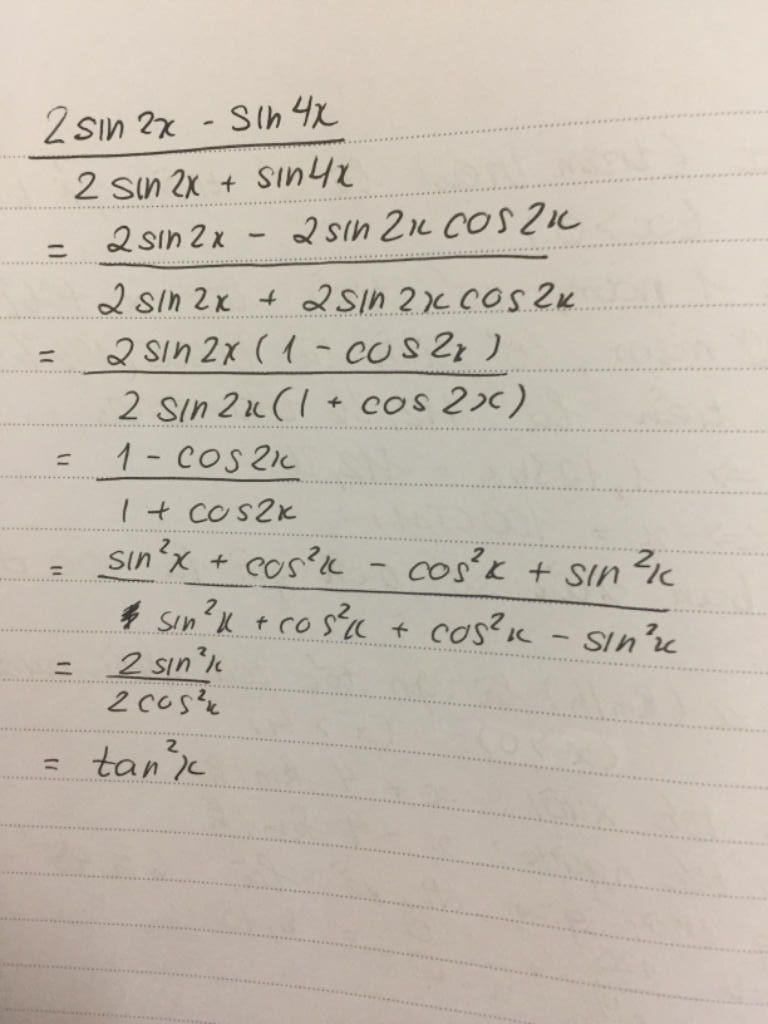 2 sin 2x - sin 4x
2 sin 2x + sin 4x
= 2 sin 2x - 2 sin 2x cos 2x
2 sin 2x + 2 sin 2x cos 2x
= 2 sin 2x (1 - cos 2x)
2 sin 2x (1 + cos 2x)
= 1 - cos 2x
1 + cos 2x
= sin²x + cos²x - cos²x + sin²x
sin²x + cos²x + cos²x - sin²x
= 2 sin²x
2 cos²x
= tan²x